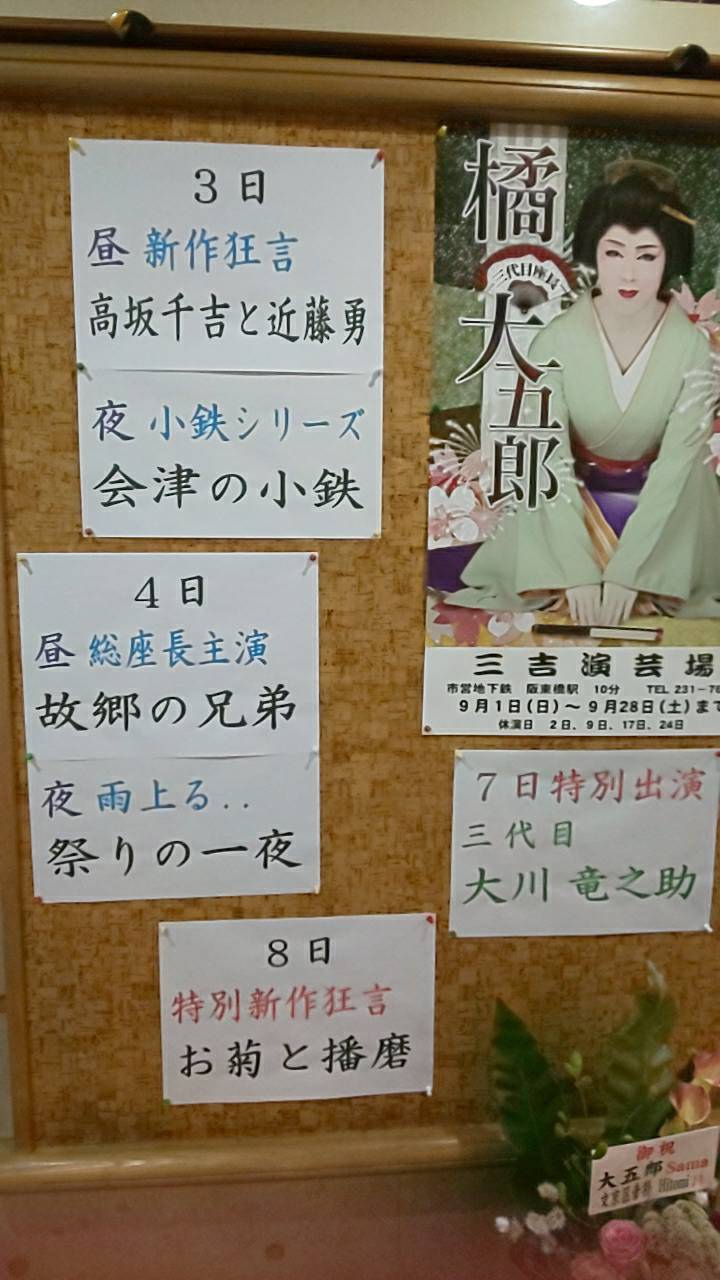 3日
昼 新作狂言
高坂千吉と近藤勇
夜 小鉄シリーズ
会津の小鉄
4日
昼 総座長主演
故郷の兄弟
夜 雨上る..
祭りの一夜
8日
特別新作狂言
お菊と播磨
橘
三代目座長
大五郎
三吉演芸場
市営地下鉄 阪東橋駅 10分 TEL 231-76
9月1日(日)～9月28日(土)まで
休演日 2日、9日、17日、24日
7日特別出演
三代目
大川 竜之助
御祝
大五郎 Sama
Hitomi